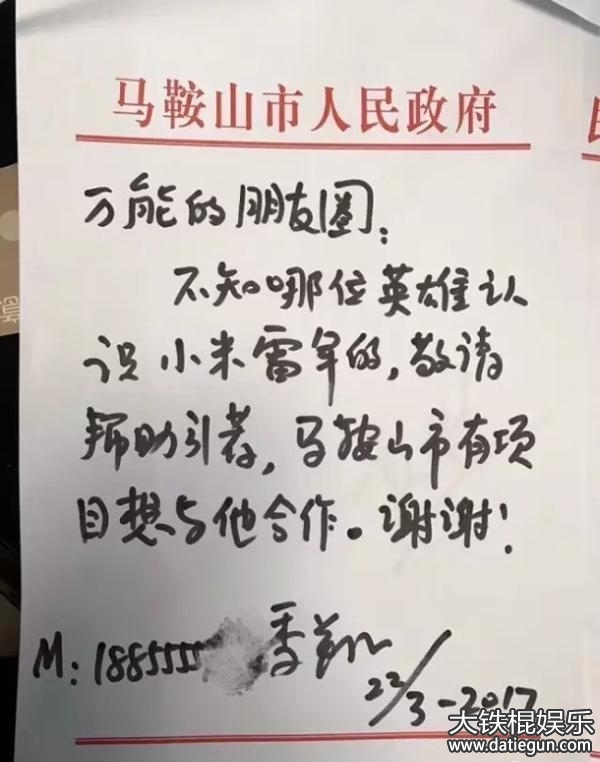 马鞍山市人民政府
万能的朋友圈:
不知哪位英雄认
识小米雷军的,敬请
帮助引荐,马鞍山市有项
目想与他合作。谢谢!
M:1885555
季翔
22/3-2017
大铁棍娱乐
www.datiegun.com